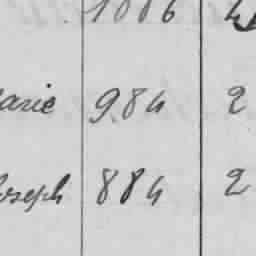 1006
arie 984 2
oseph 884 2